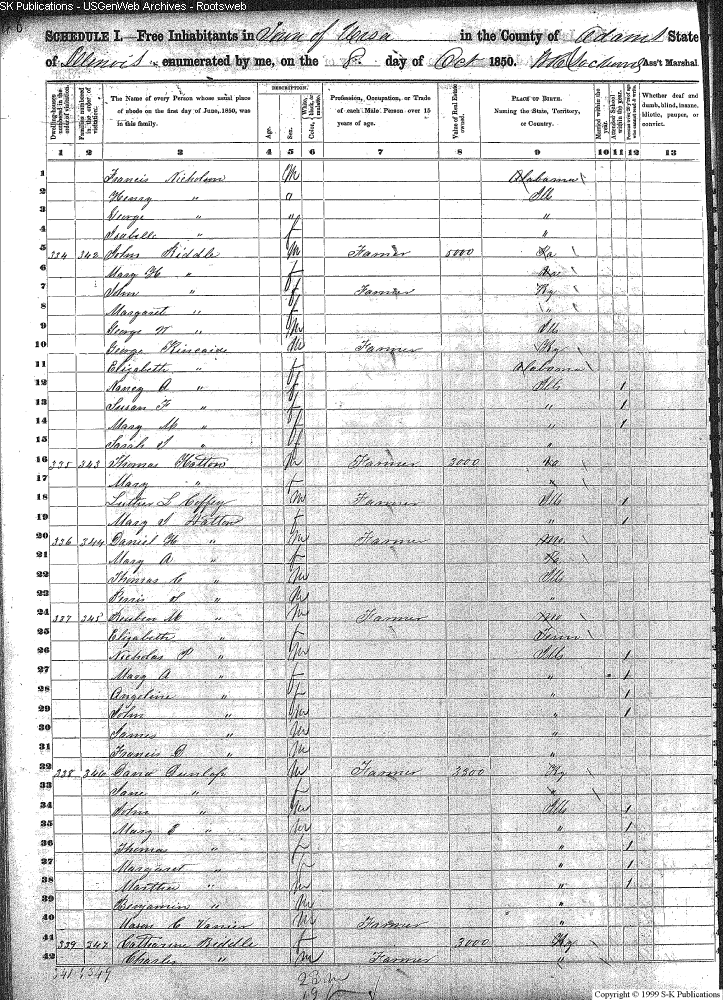 SK Publications - USGenWeb Archives - Rootsweb
SCHEDULE I.—Free Inhabitants in Town of Versa in the County of Adams State
of Illinois enumerated by me, on the 8 day of Oct 1850. Ass't Marshal
Dwelling-houses numbered in the order of visitation.
Families numbered in the order of visitation.
The Name of every Person whose usual place of abode on the first day of June, 1850, was in this family.
DESCRIPTION.
Age.
Sex.
Color, White, black, or mulatto.
Profession, Occupation, or Trade of each Male Person over 15 years of age.
Value of Real Estate owned.
PLACE OF BIRTH. Naming the State, Territory, or Country.
Married within the year.
Attended School within the year.
Persons over 20 y'rs of age who cannot read & write.
Whether deaf and dumb, blind, insane, idiotic, pauper, or convict.
1 2 3 4 5 6 7 8 9 10 11 12 13
1 Francis Nicholson M Alabama
2 Henry " " Ills
3 George " " "
4 Isabelle " f "
5 334 342 John Riddle M Farmer 5000 Va
6 Mary H " f
7 John " Farmer Ky
8 Margaret " f "
9 George W " M Ills
10 George Kincaide M Farmer Ky
11 Elizabeth " f Alabama
12 Nancy A " f Ills 1
13 Susan F " f " 1
14 Mary M " f " 1
15 Sarah J " f "
16 335 343 Thomas Hatton M Farmer 3000
17 Mary " f
18 Luther L Coffey M Farmer Ills 1
19 Mary J Hatton f " 1
20 336 344 Daniel H " M Farmer Mo
21 Mary A " f
22 Thomas C " M Ills
23 Perris " M "
24 337 345 Reuben M " M Farmer Mo
25 Elizabeth " f Tenn
26 Nicholas P " M Ills 1
27 Mary A " f " 1
28 Angeline " f " 1
29 John " M " 1
30 James " M "
31 Francis D " M "
32 338 346 David Dunlap M Farmer 3300 Ky
33 Jane " f
34 John " M Ills 1
35 Mary E " " 1
36 Thomas " " 1
37 Margaret " f " 1
38 Martha " " 1
39 Benjamin " M "
40 C Varnier M Farmer "
41 339 347 Catharine Biddle f 3000 Ky
42 Charles " M Farmer "
341 349
23 m
19 f
Copyright © 1999 S-K Publications